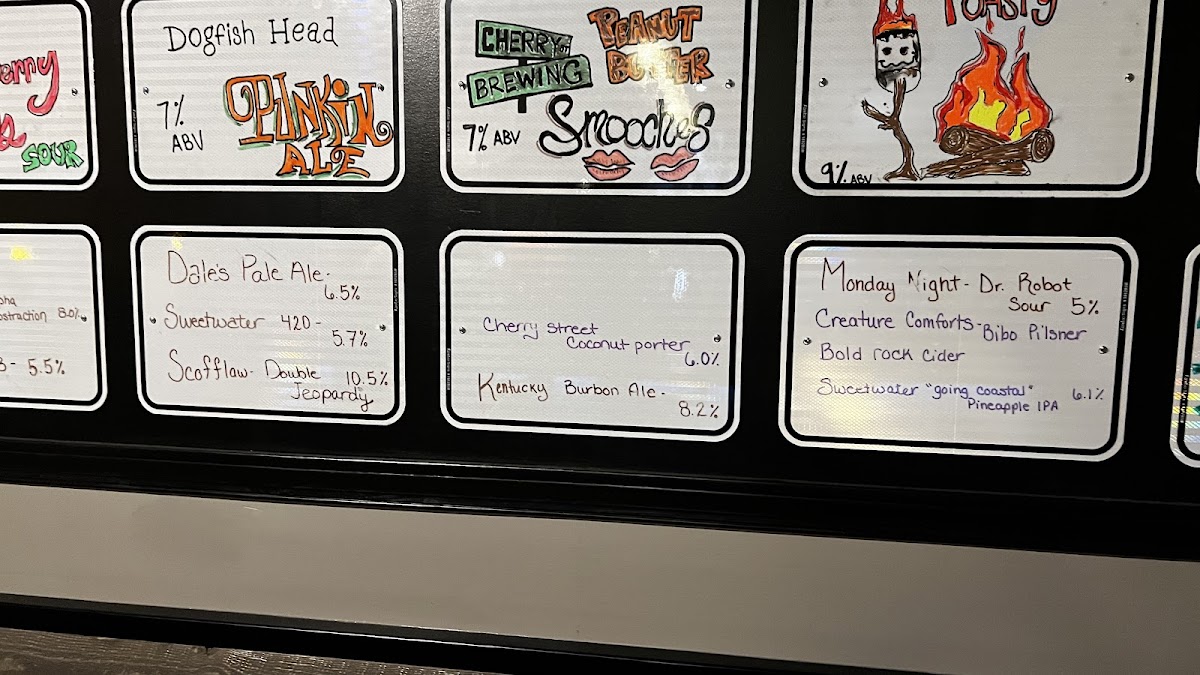 SOUR
Dogfish Head
7%
ABV
PUNKiN
ALE
CHERRY ST
BREWING
PEANUT
BUTTER
7% ABV
Smooches
TOASTY
9% ABV
8.0%
5.5%
Dale's Pale Ale-
6.5%
Sweetwater 420-
5.7%
Scofflaw- Double
Jeopardy
10.5%
Cherry street
Coconut porter
6.0%
Kentucky Burbon Ale-
8.2%
Monday Night- Dr. Robot
Sour 5%
Creature Comforts- Bibo Pilsner
Bold rock Cider
Sweetwater "going coastal" 6.1%
Pineapple IPA